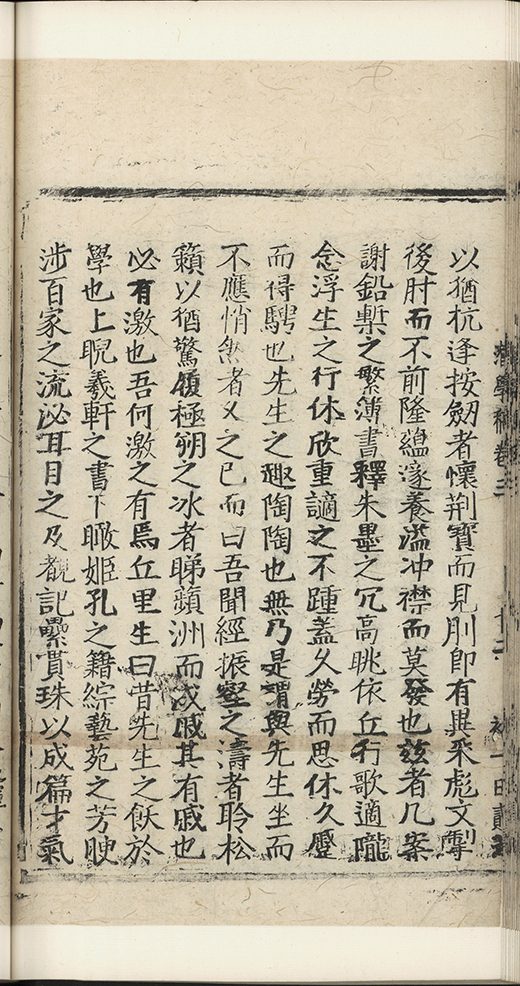 以猶杭逢按劒者懷荆寶而見刖即有異采彪文掣
後肘而不前隆蘊邃養溢冲襟而莫發也玆者几案
謝鉛槧之繁簿書釋朱墨之冗高眺依丘行歌適隴
念浮生之行休欣重謫之不踵蓋久勞而思休久蹙
而得騁也先生之趣陶陶也無乃是謂與先生坐而
不應悄然者久之已而曰吾聞經振壑之濤者聆松
籟以猶驚履極朔之冰者睇蘋洲而成戚其有戚也
必有激也吾何激之有焉丘里生曰昔先生之飫於
學也上睨羲軒之書下瞰姬孔之籍綜藝苑之芳腴
涉百家之流泌耳目之及覩記纍貫珠以成篇才氣
學稿卷三